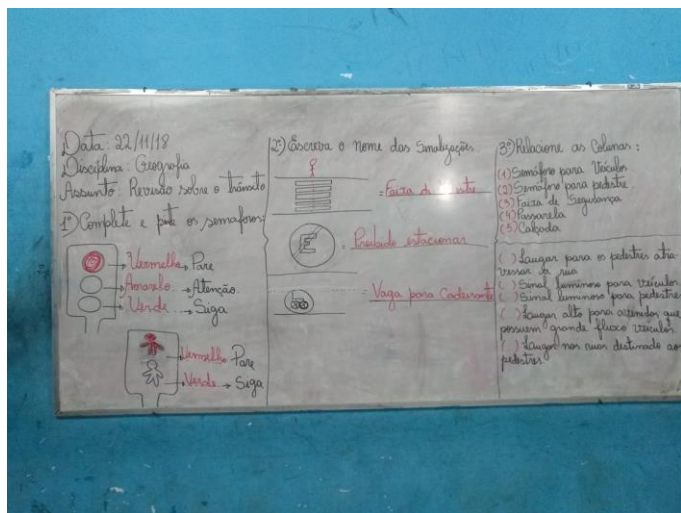 Data: 22/11/18
Disciplina: Geografia
Assunto: Revisão sobre o trânsito
1º) Complete e pinte os semaforos:
Vermelho → Pare
Amarelo → Atenção
Verde → Siga
Vermelho Pare
Verde → Siga
2º) Escreva o nome das Sinalizações
= Faixa de
E
= Proibido estacionar
= Vaga para Cadeirante
3º) Relacione as Colunas:
(1) Semáforo para Veículos
(2) Semáforo para pedestre
(3) Faixa de Segurança
(4) Passarela
(5) Calçada
( ) Laugar para os pedestres atra-
vessar a rua
( ) Sinal luminoso para veículos
( ) Sinal luminoso para pedestre
( ) Laugar alto para avenidas que
possuem grande fluxo veículos
( ) Laugar nas ruas destinado aos
pedestres.